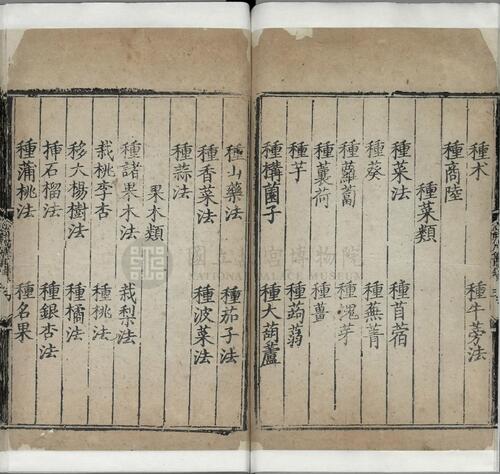 種木　種牛蒡法
種商陸
種菜類
種菜法　種苜蓿
種葵　種蕪菁
種蘿蔔　種芽
種蘘荷　種薑
種芋　種蒟蒻
種構菌子　種大葫蘆
種山藥法　種茄子法
種香菜法　種波菜法
種蒜法
果木類
種諸果木法　栽梨法
栽桃李杏　種桃法
移大楊樹法　種橘法
揷石榴法　種銀杏法
種蒲桃法　種名果
國立故宮博物院
NATIONAL PALACE MUSEUM